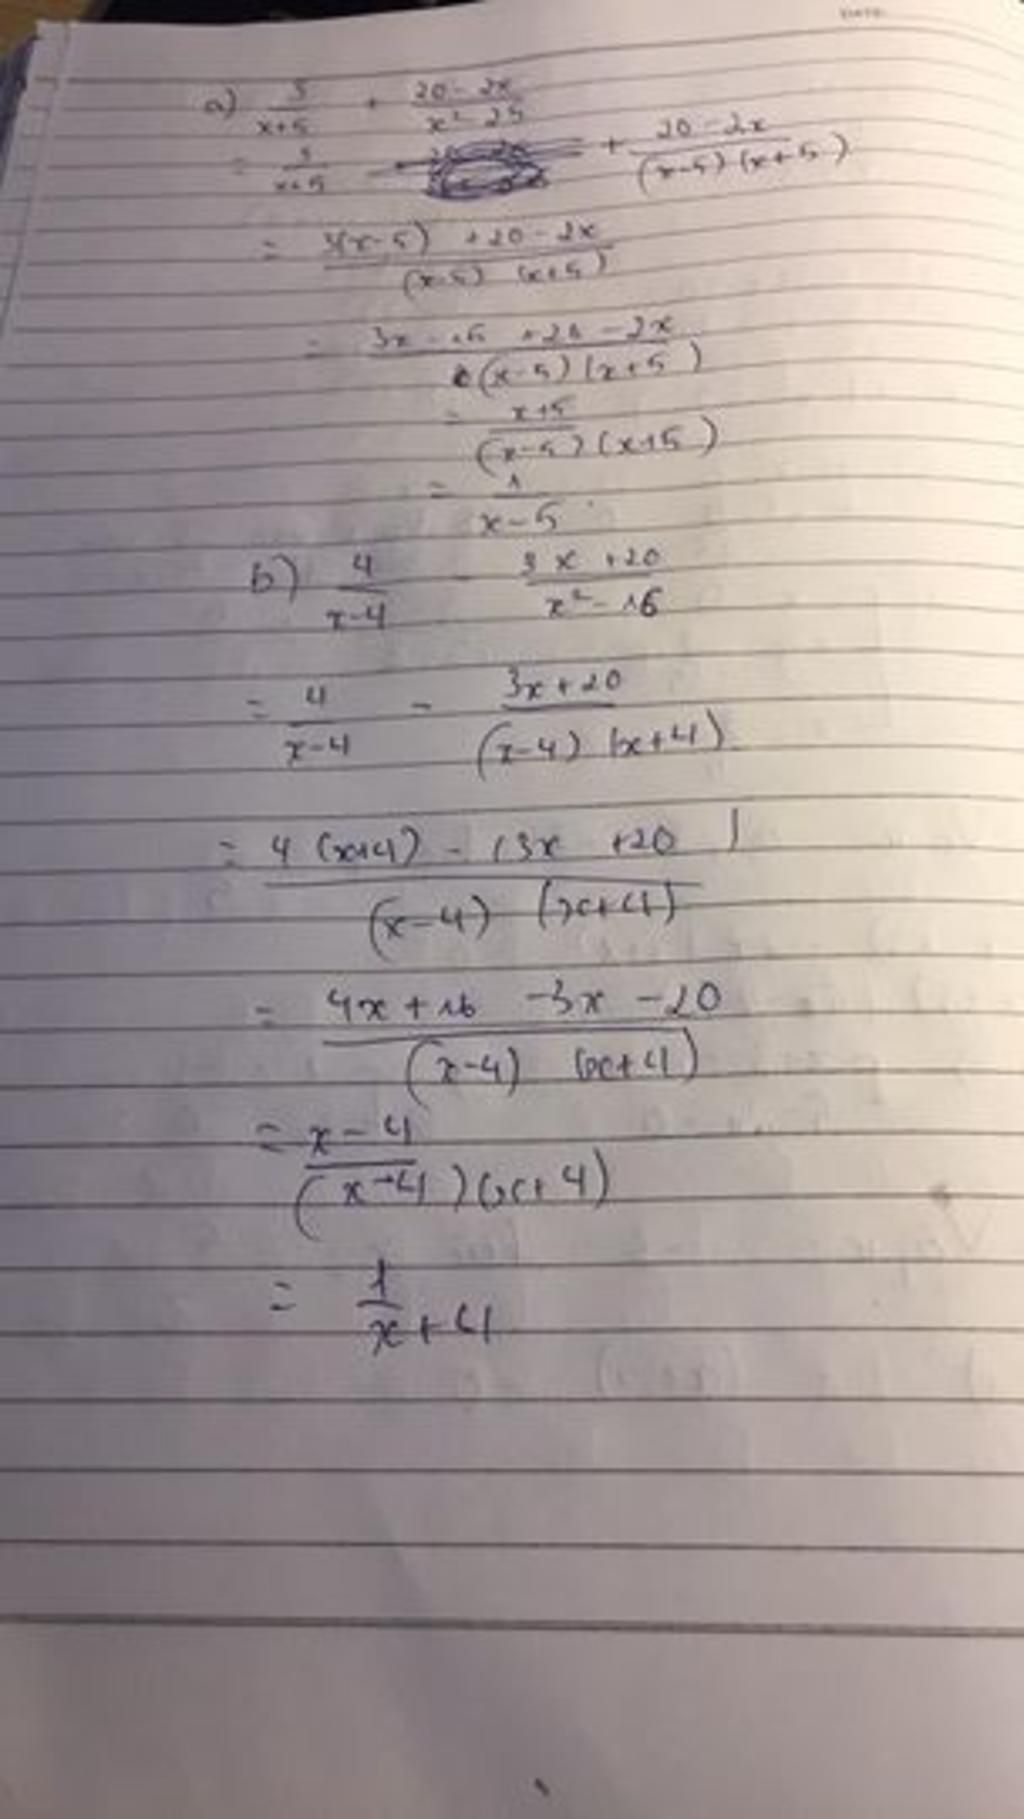 a) 3/(x+5) + (20 - 2x)/(x² - 25)
= 3/(x+5) + (20 - 2x)/((x-5)(x+5))
= (3(x-5) + 20 - 2x)/((x-5)(x+5))
= (3x - 15 + 20 - 2x)/((x-5)(x+5))
= (x+5)/((x-5)(x+5))
= 1/(x-5)
b) 4/(x-4) - (3x + 20)/(x² - 16)
= 4/(x-4) - (3x + 20)/((x-4)(x+4))
= (4(x+4) - (3x + 20))/((x-4)(x+4))
= (4x + 16 - 3x - 20)/((x-4)(x+4))
= (x-4)/((x-4)(x+4))
= 1/(x+4)